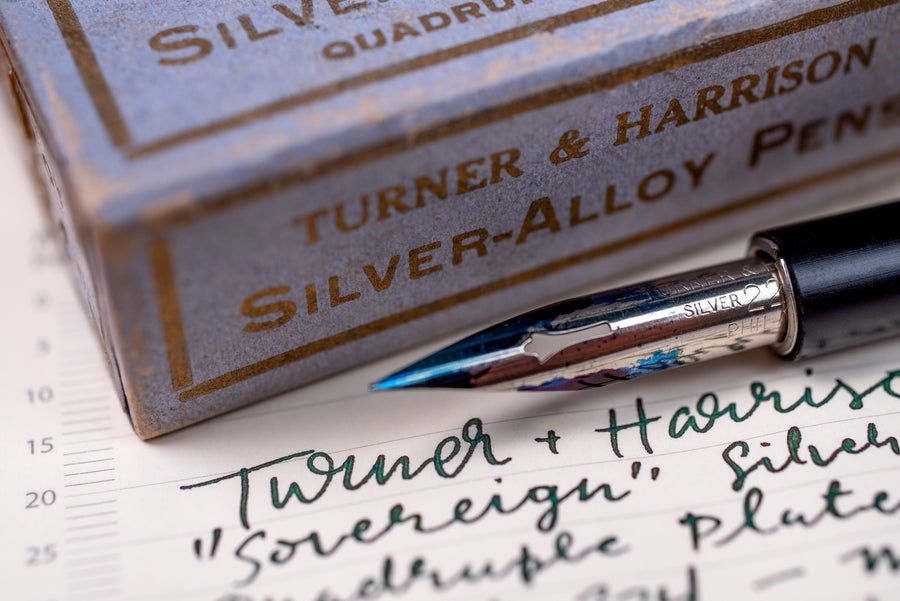 SILVER
QUADRUP
TURNER & HARRISON
SILVER-ALLOY PENS
SILVER 22
PHIL
5
10
15
20
25
Turner + Harriso
"Sovereign" Silver
Quadruple Plate